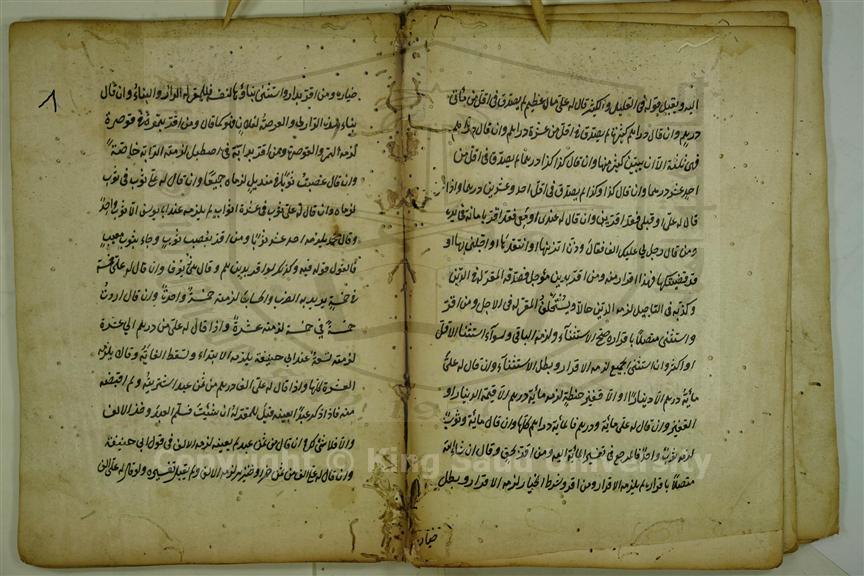 اليه ويقبل قوله في القليل والكثير قال له علي مال عظيم لم يصدق في اقل من مأتي
درهم وان قال دراهم كثيرة لم يصدق في اقل من عشرة دراهم وان قال دراهم
فهي ثلثة الا ان يبين اكثر منها وان قال كذا كذا درهما لم يصدق في اقل من
احد عشر درهما وان قال كذا وكذا لم يصدق في اقل احد وعشرين درهما واذا
قال له علي او قبلي فقد اقر بدين وان قال له عندي او معي فقد اقر بامانة في يده
ومن قال رجل لي عليك الف فقال اتزنها او انتقدها او اجلني بها او
قد قضيتكها فهذا اقرار منه ومن اقر بدين مؤجل فصدقه المقر له في الدين
وكذبه في التأجيل لزمه الدين حالا ويستحلف المقر له في الاجل ومن اقر
واستثنى متصلا باقراره صح الاستثناء ولزمه الباقي وسواء استثنى الاقل
او اكثر وان استثنى الجميع لزمه الاقرار وبطل الاستثناء وان قال له علي
مائة درهم الا دينارا او الا قفيز حنطة لزمه مائة درهم الا قيمة الدينار او
القفيز وان قال له علي مائة ودرهم فالمائة دراهم كلها وان قال مائة وثوب
لزمه ثوب واحد والمرجع في تفسير المائة اليه ومن اقر بحق وقال ان شاء الله
متصلا باقراره لم يلزمه الاقرار ومن اقر وشرط الخيار لزمه الاقرار وبطل
خيار
٨
خياره ومن اقر بدار واستثنى بناؤها لنفسه فللمقر له الدار والبناء وان قال
بناء هذه الدار لي والعرصة لفلان فهو كما قال ومن اقر بتمر في قوصرة
لزمه التمر والقوصرة ومن اقر بدابة في اصطبل لزمته الدابة خاصة
وان قال غصبت ثوبا في منديل لزماه جميعا وان قال له علي ثوب في ثوب
لزماه وان قال له علي ثوب في عشرة اثواب لم يلزمه عند ابي يوسف الا ثوب واحد
وقال محمد يلزمه احد عشر ثوبا ومن اقر بغصب ثوب وجاء بثوب معيب
فالقول قوله فيه وكذلك لو اقر بدراهم وقال هي زيوف وان قال له علي خمسة
في خمسة يريد به الضرب والحساب لزمه خمسة واحدة وان قال اردت
خمسة في خمسة لزمه عشرة واذا قال له علي من درهم الى عشرة
لزمه تسعة عند ابي حنيفة يلزمه الابتداء وتسقط الغاية وقالا يلزمه
العشرة كلها واذا قال له علي الف درهم من ثمن عبد اشتريته ولم اقبضه
منه فان ذكر عبدا بعينه قيل للمقر له ان شئت فسلم العبد وخذ الالف
والا فلا شيء لك وان قال من ثمن عبد لم يعينه لزمه الالف في قول ابي حنيفة
وان قال له علي الف من ثمن خمر او خنزير لزمه الالف ولم يقبل تفسيره ولو قال له علي الف
Copyright © King Saud University